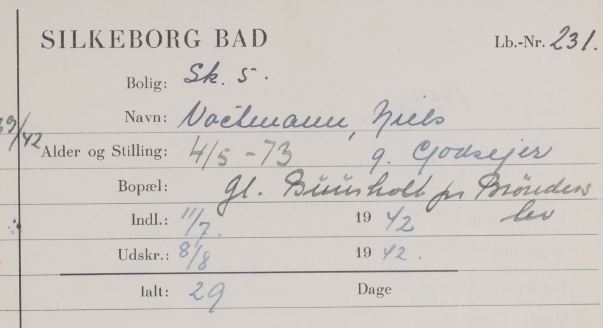 SILKEBORG BAD
Lb.-Nr. 231.
Bolig: Sk. 5.
Navn: Niels
39/42
Alder og Stilling: 4/5 -73 g. Godsejer
Bopæl: Gl. pr Brønders
lev
Indl.: 11/7. 19 42
Udskr.: 8/8 19 42.
Ialt: 29 Dage